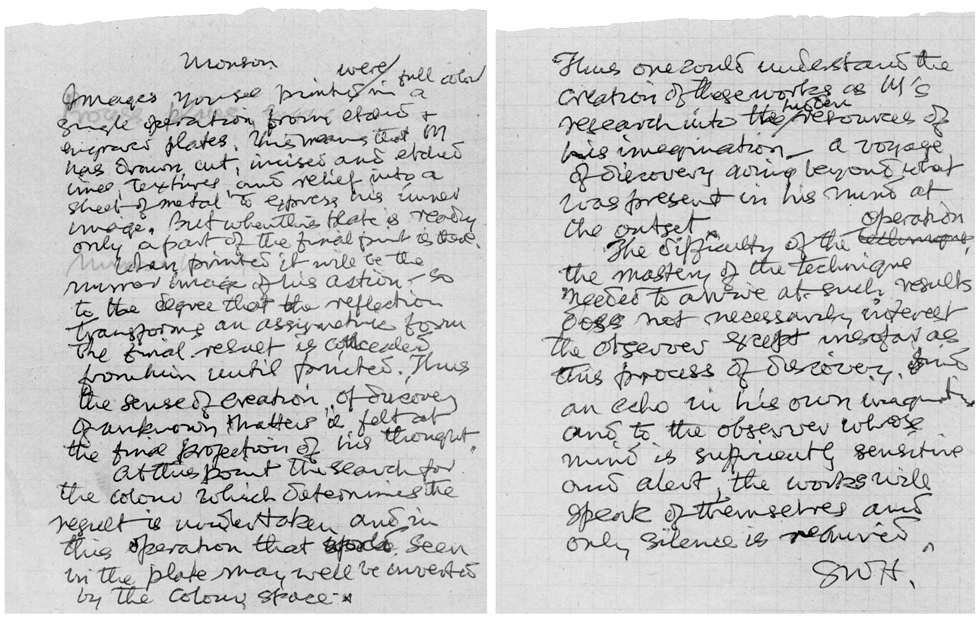 Monson
were full color
Images you see printed in a
single operation from etched +
engraved plates. This means that M
has drawn cut, incised and etched
lines, textures, and relief into a
sheet of metal to express his inner
image. But when this plate is ready
only a part of the final print is there.
When printed it will be the
mirror image of his action - so
to the degree that the reflection
transforms an assymetric form
the final result is concealed
from him until printed. Thus
the sense of creation, of discovery
of unknown matters is felt at
the final projection of his thought.
At this point the search for
the colour which determines the
result is undertaken and in
this operation that seen
in the plate may well be inverted
by the colour space.
Thus one could understand the
creation of these works as M's
hidden
research into the resources of
his imagination – a voyage
of discovery going beyond what
was present in his mind at
the outset.
operation
The difficulty of the
the mastery of the technique
needed to arrive at such results
does not necessarily interest
the observer except insofar as
this process of discovery find
an echo in his own imagination
and to the observer whose
mind is sufficiently sensitive
and alert, the works will
speak of themselves and
only silence is required.
SWH.